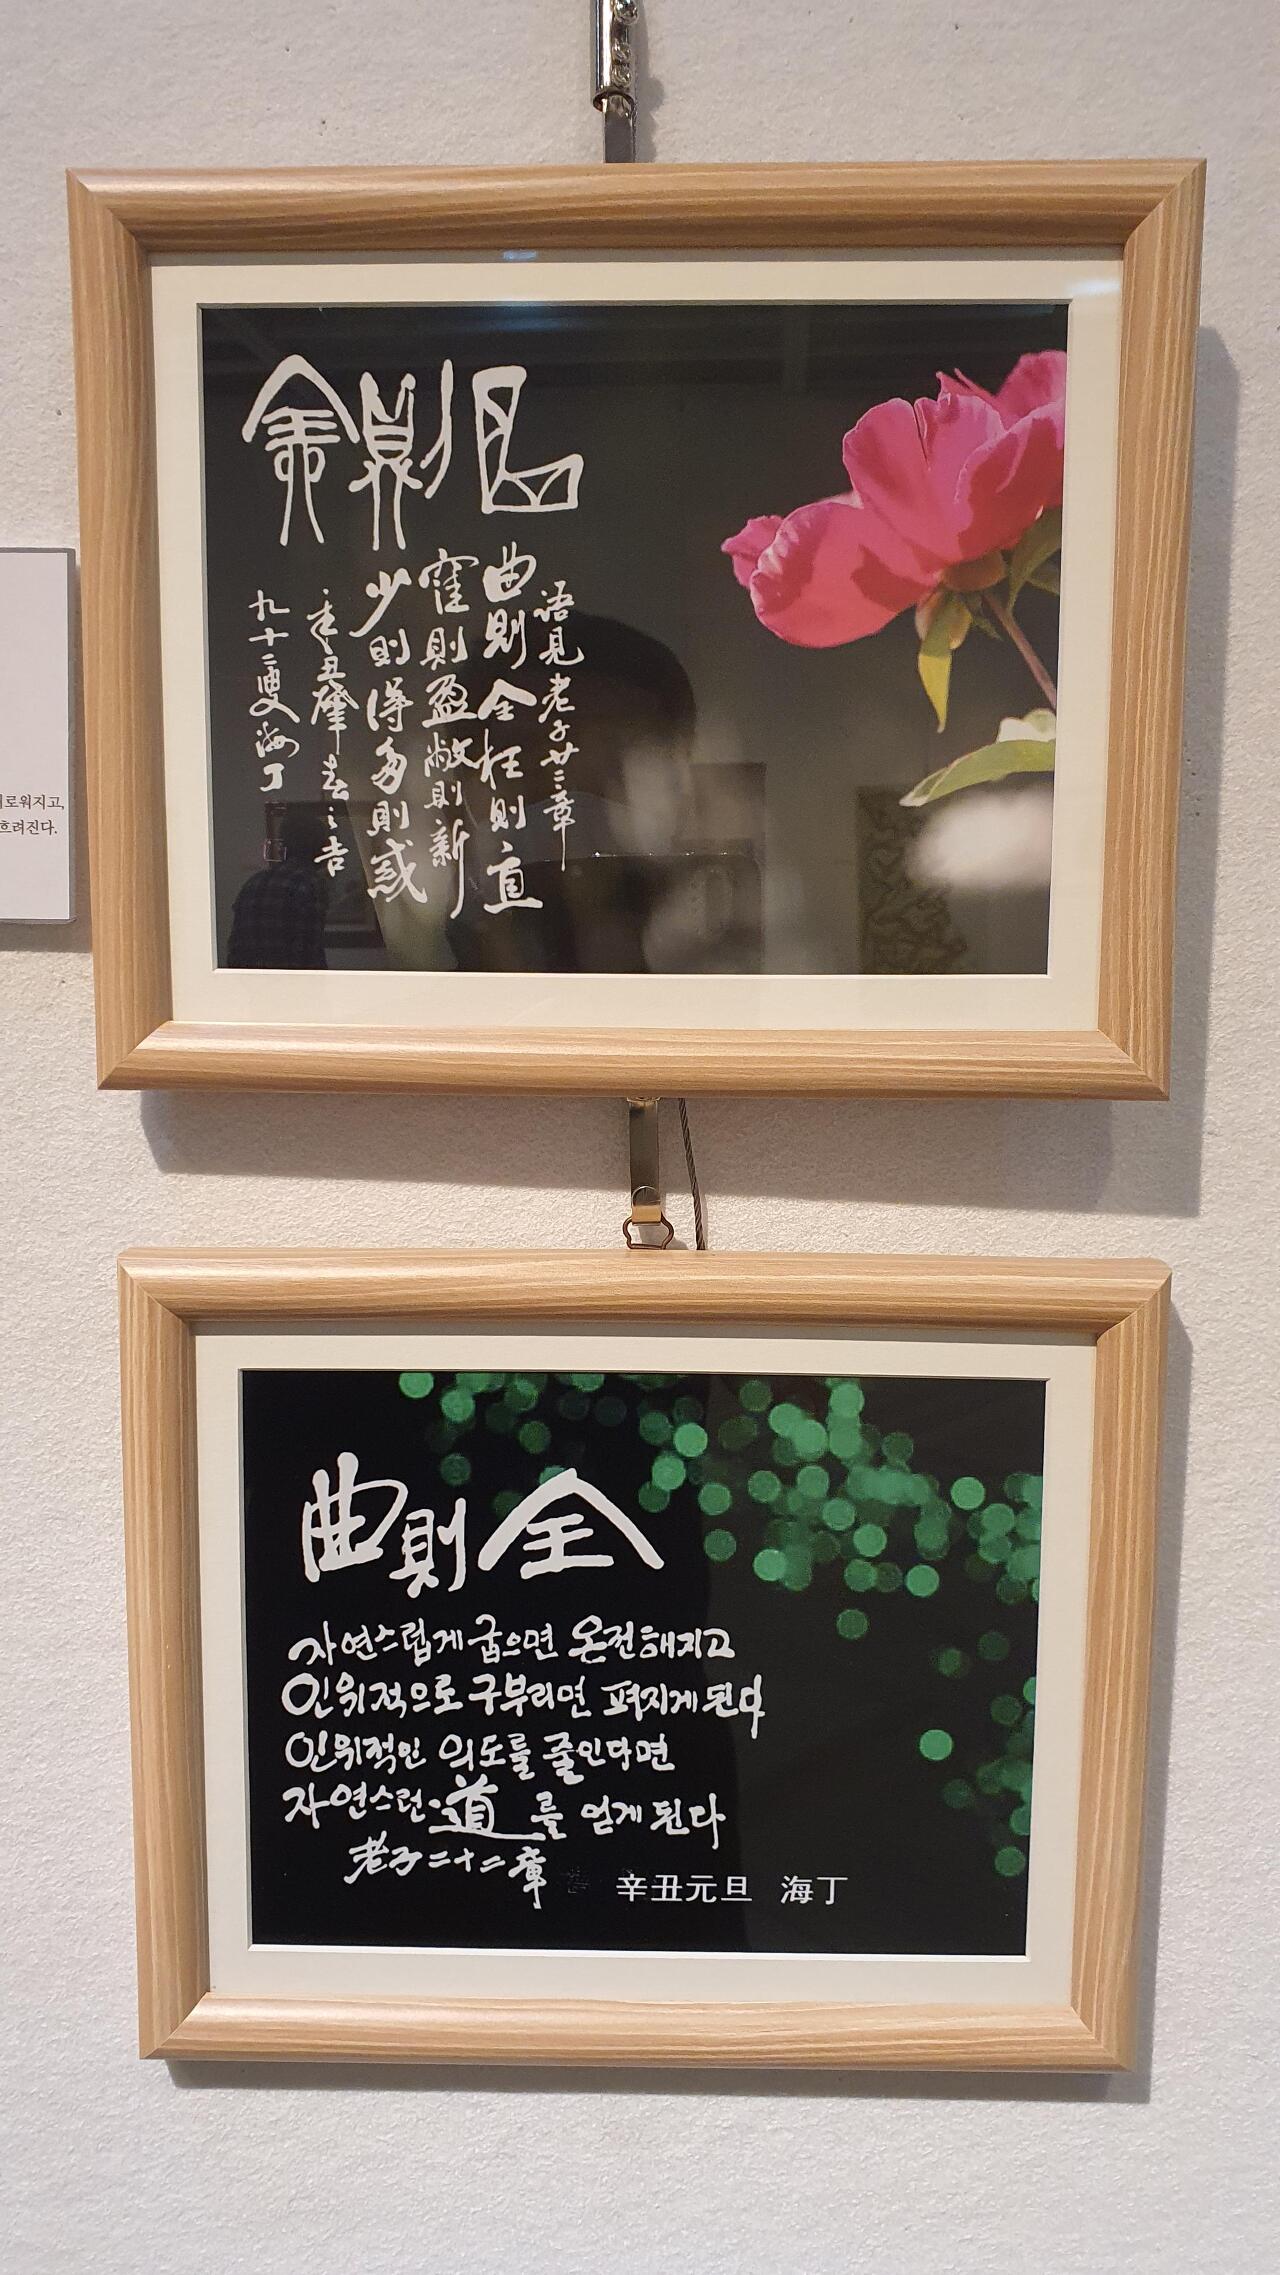 새로워지고,
흐려진다.
曲則全
語見老子廿二章
曲則全枉則直
窪則盈敝則新
少則得多則惑
辛丑肇春之吉
九十二叟海丁
曲則全
자연스럽게 굽으면 온전해지고
인위적으로 구부리면 펴지게 된다
인위적인 의도를 줄인다면
자연스런 道를 얻게 된다
老子二十二章
辛丑元旦 海丁